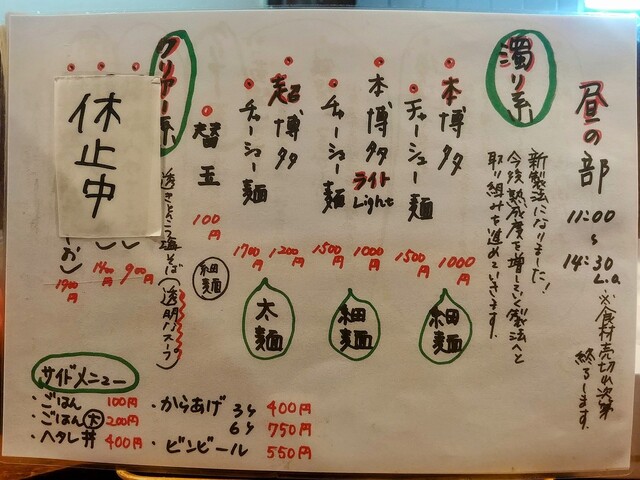 昼の部
11:00
〜
14:30
L.O.
※食材売切れ次第
終了します。
濁り系
新製法になりました!
今後熟成度を増していく製法へと
取り組みを進めていきます。
本博多
1000円
チャーシュー麺
1500円
細麺
本博多
ライト
Light
1000円
チャーシュー麺
1500円
細麺
超博多
1200円
チャーシュー麺
1700円
太麺
替玉
100円
細麺
クリアー系
透きとおる塩そば(透明スープ)
休止中
900円
1400円
1900円
サイドメニュー
・ごはん 100円
・ごはん大 200円
・ヘタレ丼 400円
・からあげ 3ヶ 400円
6ヶ 750円
・ビンビール 550円